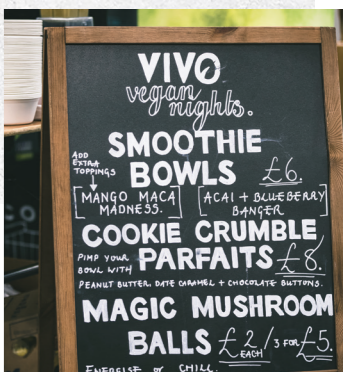 VIVO
vegan
nights.
SMOOTHIE
BOWLS £6.
ADD
EXTRA
TOPPINGS
[MANGO MACA
MADNESS.]
[ACAI + BLUEBERRY
BANGER]
COOKIE CRUMBLE
PARFAITS £8.
PIMP YOUR
BOWL WITH
PEANUT BUTTER, DATE CARAMEL + CHOCOLATE BUTTONS.
MAGIC MUSHROOM
BALLS £2/EACH 3 FOR £5.
ENERGISE or CHILL.